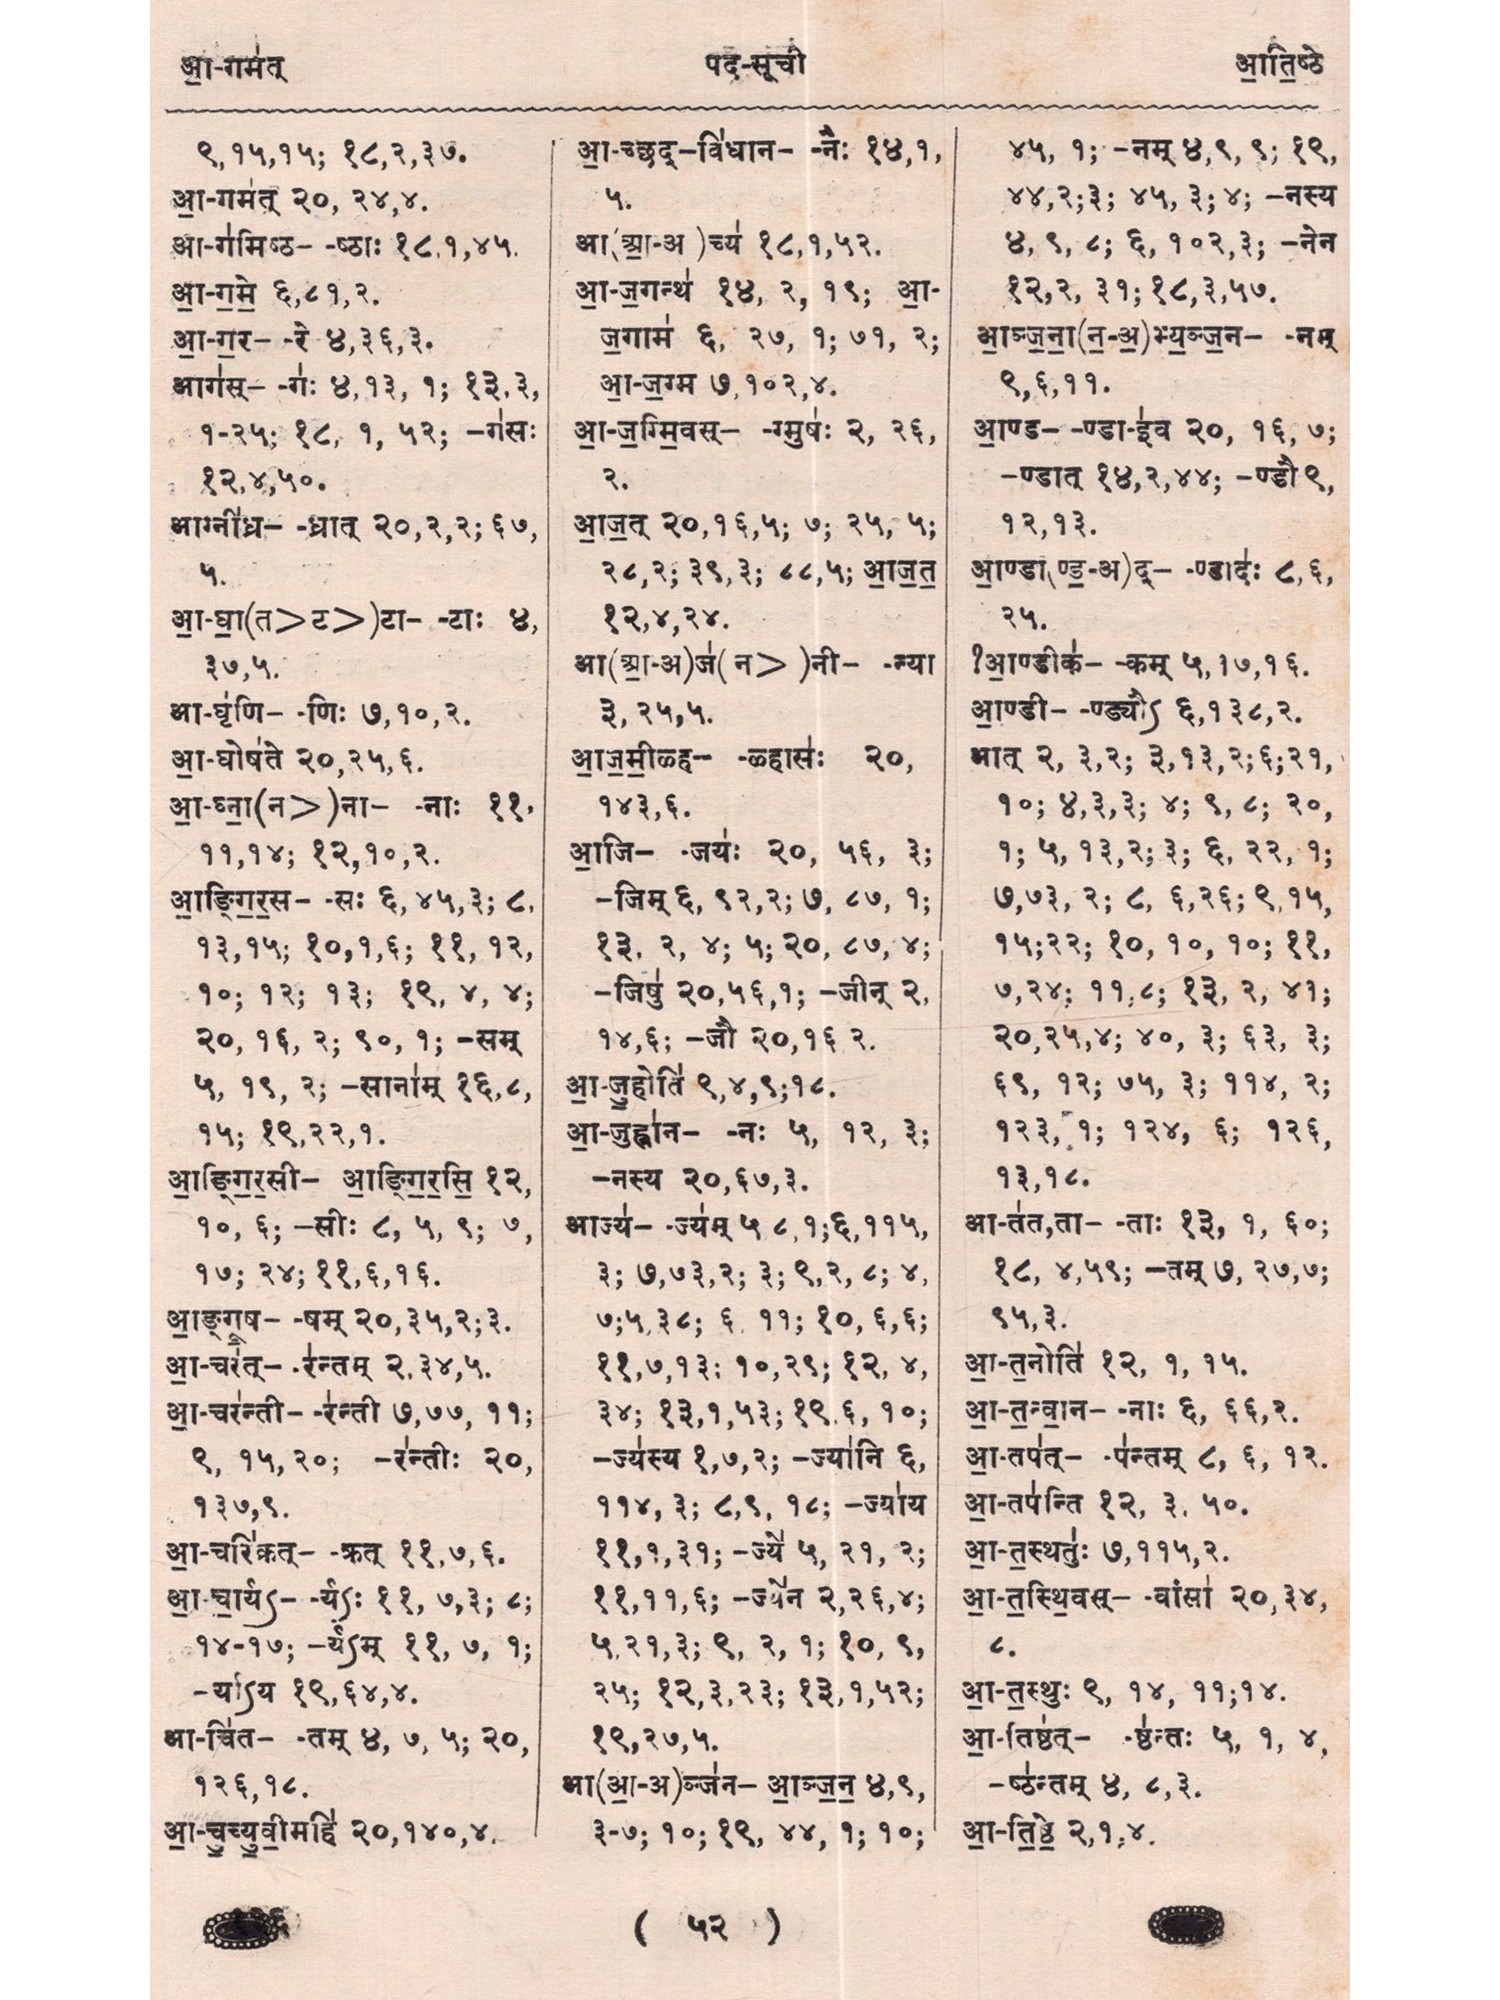 आ॒-गम॑त्
पद-सूची
आ॒ति॒ष्ठे
९,१५,१५; १८,२,३७.
आ॒-गम॑त् २०, २४,४.
आ-ग॑मिष्ठ– -ष्ठाः १८,१,४५.
आ॒-ग॒मे॒ ६,८१,२.
आ॒-ग॒र– -रे ४,३६,३.
आग॑स्– -ग॑ः ४,१३, १; १३,३,
१-२५; १८, १, ५२; –ग॑सः
१२,४,५०.
आग्नी॑ध्र– -ध्रात् २०,२,२; ६७,
५.
आ॒-घा॒(त>ट>)टा– -टाः ४,
३७,५.
आ-घृ॑णि– -णिः ७,१०,२.
आ॒-घोष॑ते २०,२५,६.
आ॒-घ्ना॒(न>)ना– -नाः ११,
११,१४; १२,१०,२.
आ॒ङ्गि॒र॒स– -सः ६,४५,३; ८,
१३,१५; १०,१,६; ११, १२,
१०; १२; १३; १९, ४, ४;
२०, १६, २; ९०, १; –सम्
५, १९, २; –साना॑म् १६,८,
१५; १९,२२,१.
आ॒ङ्गि॒र॒सी– आ॒ङ्गि॒र॒सि॒ १२,
१०, ६; –सीः ८, ५, ९; ७,
१७; २४; ११,६,१६.
आ॒ङ्गू॒ष– -षम् २०,३५,२;३.
आ॒-चर॑त्– -र॑न्तम् २,३४,५.
आ॒-चर॑न्ती– -र॑न्ती ७,७७, ११;
९, १५,२०; –र॑न्तीः २०,
१३७,९.
आ॒-चरि॑क्रत्– -क्रत् ११,७,६.
आ॒-चा॒र्य॑ऽ– -र्य॑ऽः ११, ७,३; ८;
१४-१७; –र्य॑ऽम् ११, ७, १;
–र्या॑ऽय १९,६४,४.
आ-चि॑त– -तम् ४, ७, ५; २०,
१२६,१८.
आ॒-चु॒च्यु॒वी॒महि॑ २०,१४०,४.
आ॒-च्छद्–वि॑धान– -नै॑ः १४,१,
५.
आ(आ॒-अ )च्य॑ १८,१,५२.
आ॒-ज॒गन्थ॑ १४, २, १९; आ॒-
ज॒गाम॑ ६, २७, १; ७१, २;
आ॒-ज॒ग्म ७,१०२,४.
आ॒-ज॒ग्मि॒वस्– -ग्मुष॑ः २, २६,
२.
आ॒ज॒त् २०,१६,५; ७; २५, ५;
२८,२; ३९,३; ८८,५; आ॒ज॒त॒
१२,४,२४.
आ(आ॒-अ)ज॑(न> )नी– -न्या
३,२५,५.
आ॒ज॒मी॒ळ्ह– -ळ्हास॑ः २०,
१४३,६.
आ॒जि– -जय॑ः २०, ५६, ३;
–जिम् ६, ९२,२; ७, ८७, १;
१३, २, ४; ५; २०, ८७, ४;
–जिषु॑ २०,५६,१; –जीन् २,
१४,६; –जौ २०,१६ २.
आ॒-जु॒होति॑ ९,४,९;१८.
आ॒-जुह्वा॑न– -नः ५, १२, ३;
–नस्य २०,६७,३.
आज्य॑– -ज्य॑म् ५ ८,१;६,११५,
३; ७,७३,२; ३; ९,२, ८; ४,
७;५,३८; ६ ११; १०,६,६;
११,७,१३; १०,२९; १२, ४,
३४; १३,१,५३; १९,६, १०;
–ज्य॑स्य १,७,२; –ज्या॑नि ६,
११४, ३; ८,९, १८; –ज्या॑य
११,१,३१; –ज्ये॑ ५, २१, २;
११,११,६; –ज्ये॑न २,२६,४;
५,२१,३; ९, २, १; १०, ९,
२५; १२,३,२३; १३,१,५२;
१९,२७,५.
आ(आ॒-अ)ञ्ज॑न– आ॒ञ्ज॒न॒ ४,९,
३-७; १०; १९, ४४, १; १०;
४५, १; –नम् ४,९, ९; १९,
४४,२;३; ४५, ३; ४; –नस्य
४, ९, ८; ६, १०२,३; –नेन
१२,२, ३१; १८,३,५७.
आ॒ञ्ज॒ना॒(न॒-अ॒)भ्य॒ञ्ज॒न– -नम्
९,६,११.
आ॒ण्ड– -ण्डा-इ॑व २०, १६, ७;
–ण्डात् १४,२,४४; –ण्डौ ९,
१२,१३.
आ॒ण्डा(ण्ड॒-अ)द्– -ण्डाद॑ः ८,६,
२५.
?आ॒ण्डीक॑– -कम् ५,१७,१६.
आ॒ण्डी– -ण्ड्यौ॑ऽ ६,१३८,२.
आत् २, ३,२; ३,१३,२;६;२१,
१०; ४,३,३; ४; ९, ८; २०,
१; ५, १३,२; ३; ६, २२, १;
७,७३, २; ८, ६,२६; ९,१५,
१५;२२; १०, १०, १०; ११,
७,२४; ११,८; १३, २, ४१;
२०,२५,४; ४०, ३; ६३, ३;
६९, १२; ७५, ३; ११४, २;
१२३, १; १२४, ६; १२६,
१३,१८.
आ-त॑त,ता– -ताः १३, १, ६०;
१८, ४,५९; –तम् ७, २७,७;
९५,३.
आ॒-त॒नोति॑ १२, १, १५.
आ॒-त॒न्वा॒न– -नाः ६, ६६,२.
आ॒-तप॑त्– -प॑न्तम् ८, ६, १२.
आ॒-तप॑न्ति १२, ३, ५०.
आ॒-त॒स्थतु॑ः ७,११५,२.
आ॒-त॒स्थि॒वस्– -वांसा॑ २०,३४,
८.
आ॒-त॒स्थुः ९, १४, ११;१४.
आ॒-तिष्ठ॑त्– -ष्ठ॑न्तः ५, १, ४,
–ष्ठ॑न्तम् ४, ८,३.
आ॒-ति॒ष्ठे॒ २,१,४.
( ५२ )